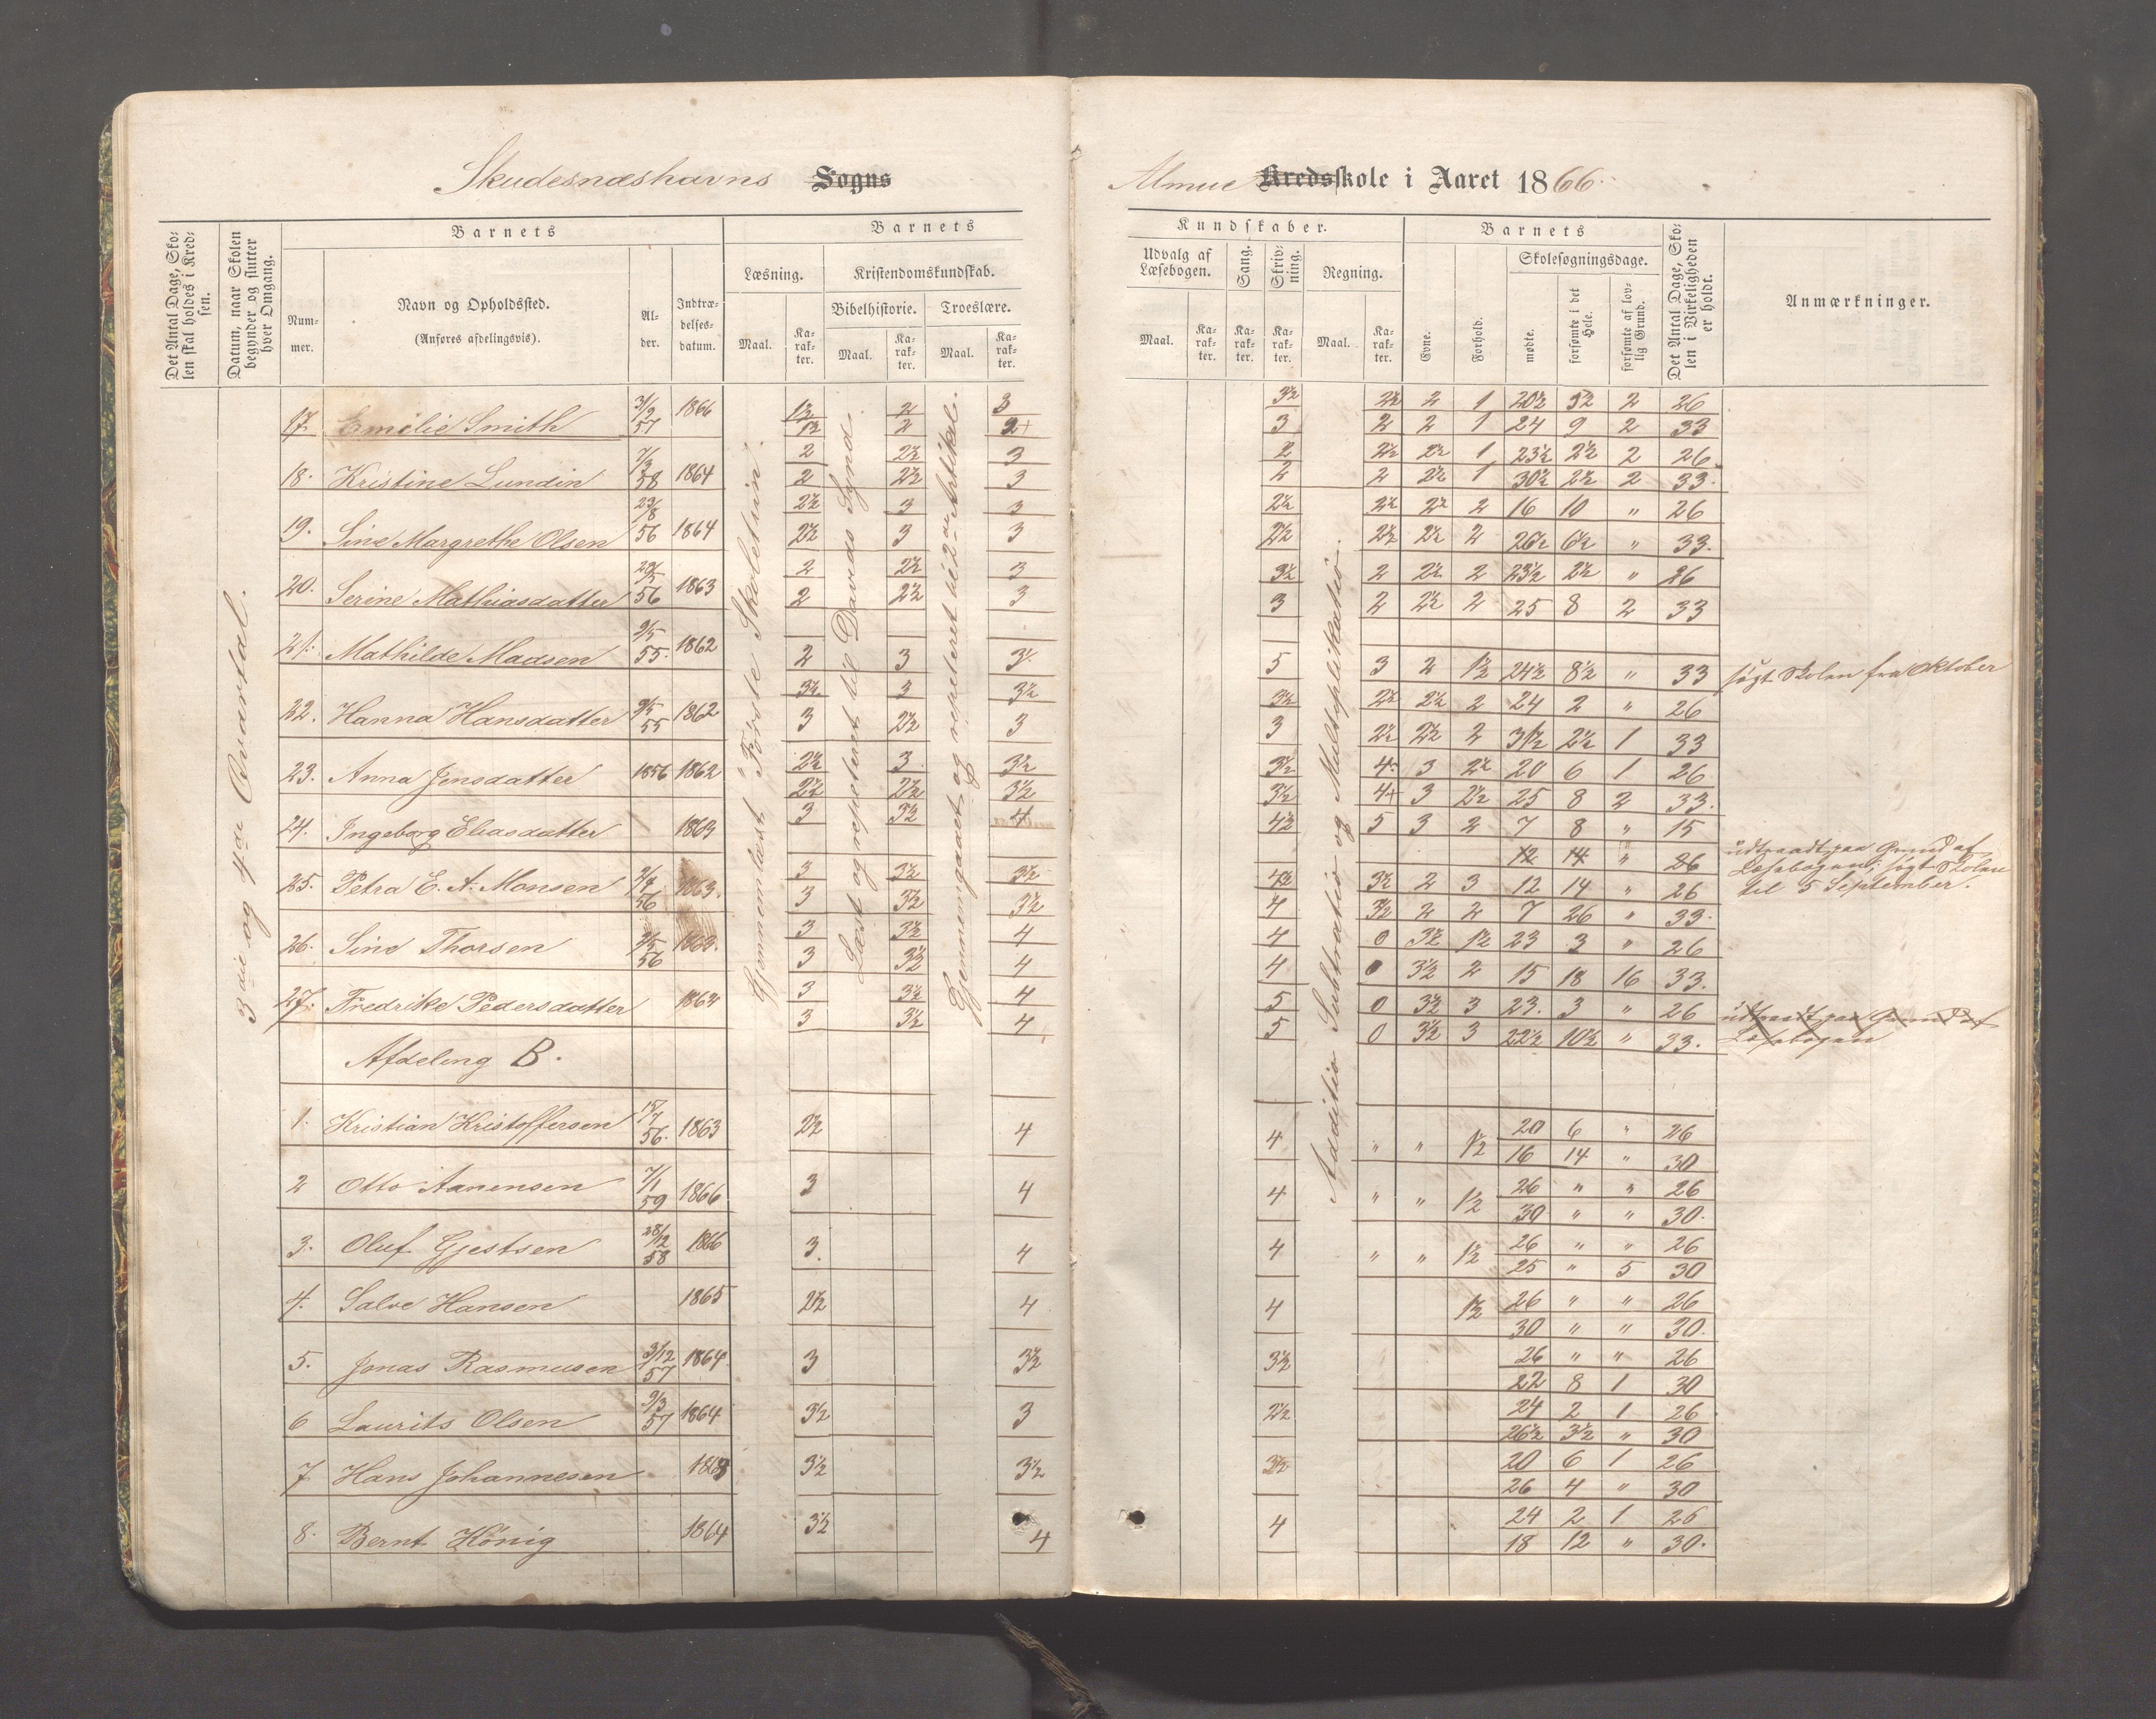 Skudesnæshavns Sogns
Almue Kredsskole i Aaret 1866.
Det Antal Dage, Sko-
len skal holdes i Kred-
sen.
Datum, naar Skolen
begynder og slutter
hver Omgang.
Barnets
Num-
mer.
Navn og Opholdssted.
(Anføres afdelingsvis).
Al-
der.
Indtræ-
delses-
datum.
Barnets
Læsning.
Maal.
Ka-
rak-
ter.
Kristendomskundskab.
Bibelhistorie.
Maal.
Ka-
rak-
ter.
Troeslære.
Maal.
Ka-
rak-
ter.
Kundskaber.
Udvalg af
Læsebogen.
Maal.
Ka-
rak-
ter.
Sang.
Ka-
rak-
ter.
Skriv-
ning.
Ka-
rak-
ter.
Regning.
Maal.
Ka-
rak-
ter.
Barnets
Evne.
Forhold.
Skolesøgningsdage.
mødte.
forsømte i det
Hele.
forsømte af lov-
lig Grund.
Det Antal Dage, Sko-
len i Virkeligheden
er holdt.
Anmærkninger.
3die og 4de Qvartal.
Gjennemlæst "Første Skoletrin".
Læst og repeteret til Davids Synd.
Gjennemgaaet og repeteret til 2den Artikel.
Additio Subtratio og Multiplikatio.
17. Emilie Smith 31/2 57 1866 1½ 2 3 3½ 2½ 2 1 20½ 5½ 2 26
1½ 2 3+ 3 2 2 1 24 9 2 33
18. Kristine Lundin 7/3 58 1864 2 2½ 3 2 2½ 2½ 1 23½ 2½ 2 26
2 2½ 3 2 2 2½ 1 30½ 2½ 2 33.
19. Sine Margrethe Olsen 29/8 56 1864 2½ 3 3 2½ 2½ 2½ 2 16 10 " 26
2½ 3 3 2½ 2½ 2½ 2 26½ 6½ " 33.
20. Serine Mathiasdatter 29/5 56 1863 2 2½ 3 3½ 2 2½ 2 23½ 2½ " 26
2 2½ 3 3 2 2½ 2 25 8 2 33
21. Mathilde Madsen 9/5 55. 1862 2 3 3½ 5 3 2 1½ 24½ 8½ " 33 søgt Skolen fra Oktober
22. Hanna Hansdatter 9/5 55 1862 3½ 3 3½ 3½ 2½ 2½ 2 24 2 " 26
3 2½ 3 3 2½ 2½ 2 31½ 2½ 1 33
23. Anna Jensdatter 1856 1862 2½ 3 3½ 3½ 4 3 2½ 20 6 1 26
2½ 2½ 3½ 3½ 4+ 3 2½ 25 8 2 33.
24. Ingeborg Eliasdatter 1863 3 3½ 4 4½ 5 3 2 7 8 " 15
12 14 " 26
udtraadt paa Grund af
Læsebogen; søgt Skolen
til 5 September.
25. Petra E. A. Monsen 2/4 56 1863. 3 3½ 3½ 4½ 3½ 2 3 12 14 " 26
3 3½ 3½ 4 3½ 2 2 7 26 " 33.
26. Sine Thorsen 2/5 56 1863. 3 3½ 4 4 0 3½ 1½ 23 3 " 26
3 3½ 4 4 0 3½ 2 15 18 16 33.
27. Fredrike Pedersdatter 1863 3 3½ 4 5 0 3½ 3 23. 3 " 26
3 3½ 4 5 0 3½ 3 22½ 10½ " 33.
udtraadt paa Grund af
Læsebogen
Afdeling B.
1. Kristian Kristoffersen 15/7 56. 1863 2½ 4 4 " " 1½ 20 6 " 26
16 14 " 30
2 Otto Aanensen 7/1 59 1866 3 4 4 " " 1½ 26 " " 26
30 " " 30.
3. Oluf Gjestsen 28/12 58 1866 3. 4 4 " " 1½ 26 " " 26
25 " 5 30
4. Salve Hansen 1865 2½ 4 4 1½ 26 " " 26
30 " " 30.
5. Jonas Rasmusen 3/12 57 1864 3 3½ 3½ 26 " " 26
22 8 1 30
6 Laurits Olsen 9/3 57 1864 3½ 3 2½ 24 2 1 26
26½ 3½ " 30
7 Hans Johannesen 1863 3½ 3½ 3½ 20 6 1 26
26 4 " 30
8. Bernt König 1864 3½ 4 4 24 2 1 26
18 12 " 30.